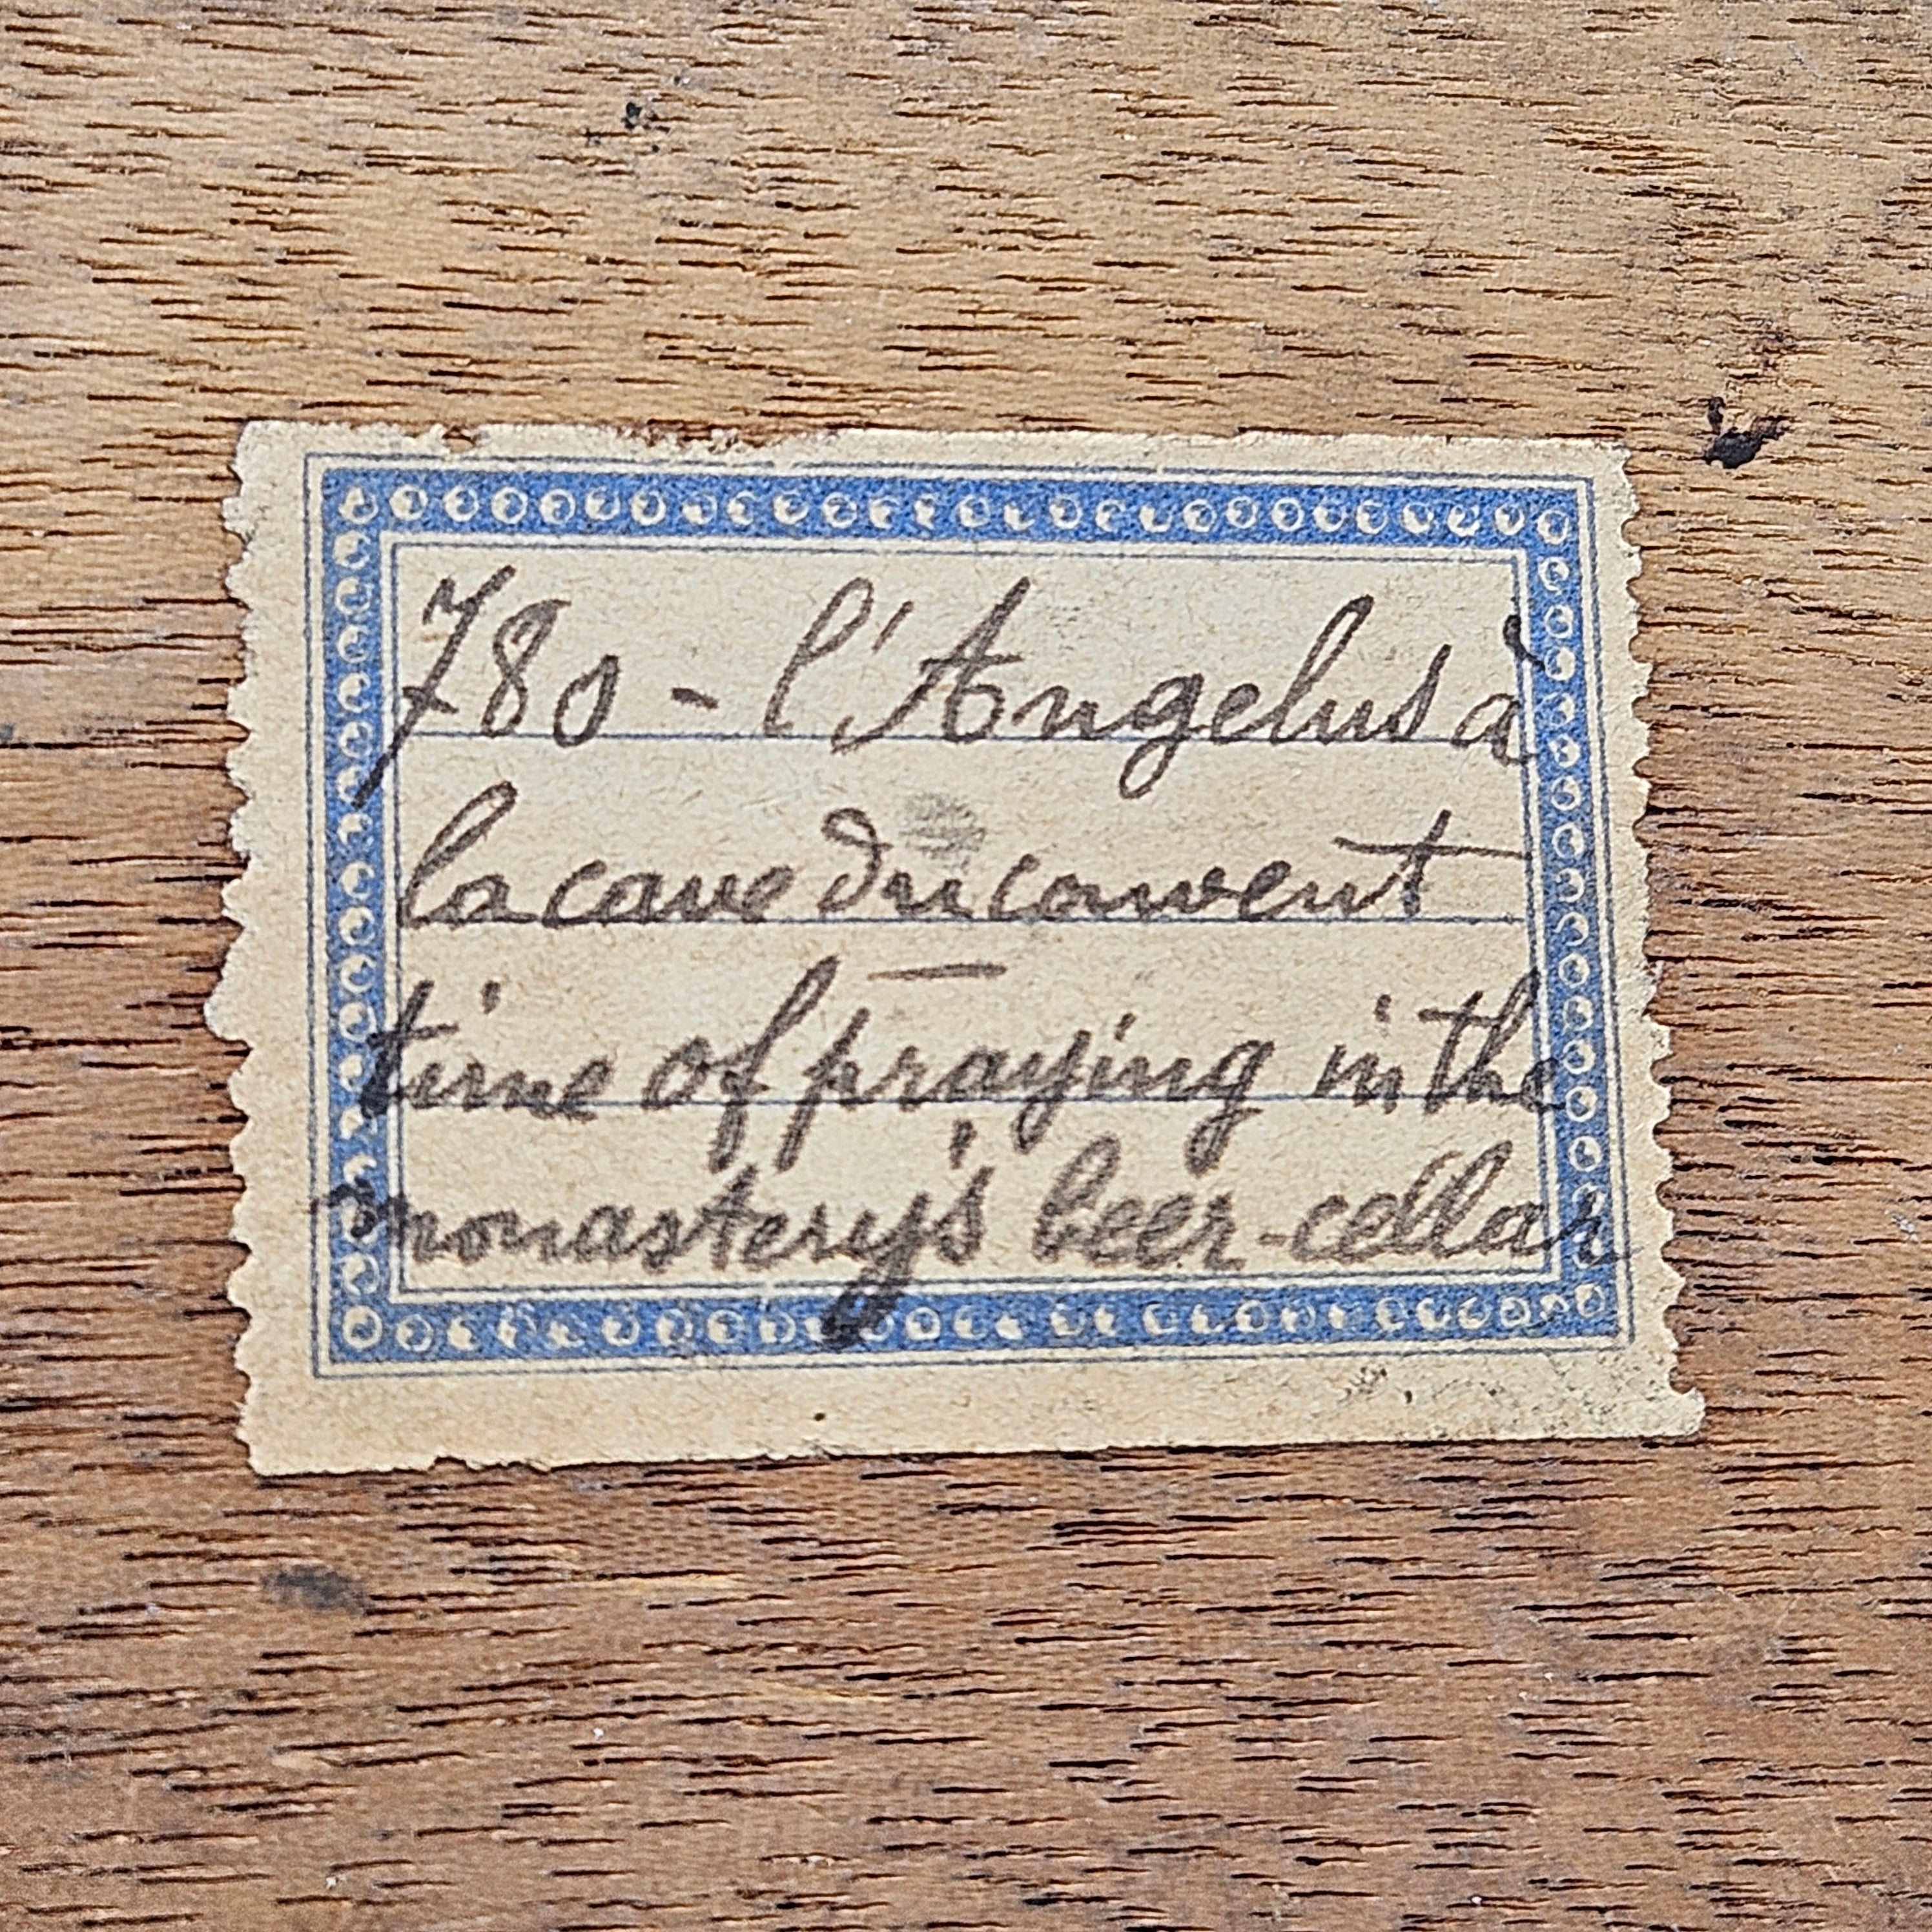 780 - l'Angelus à
la cave du couvent
—
time of praying in the
monastery's beer-cellar